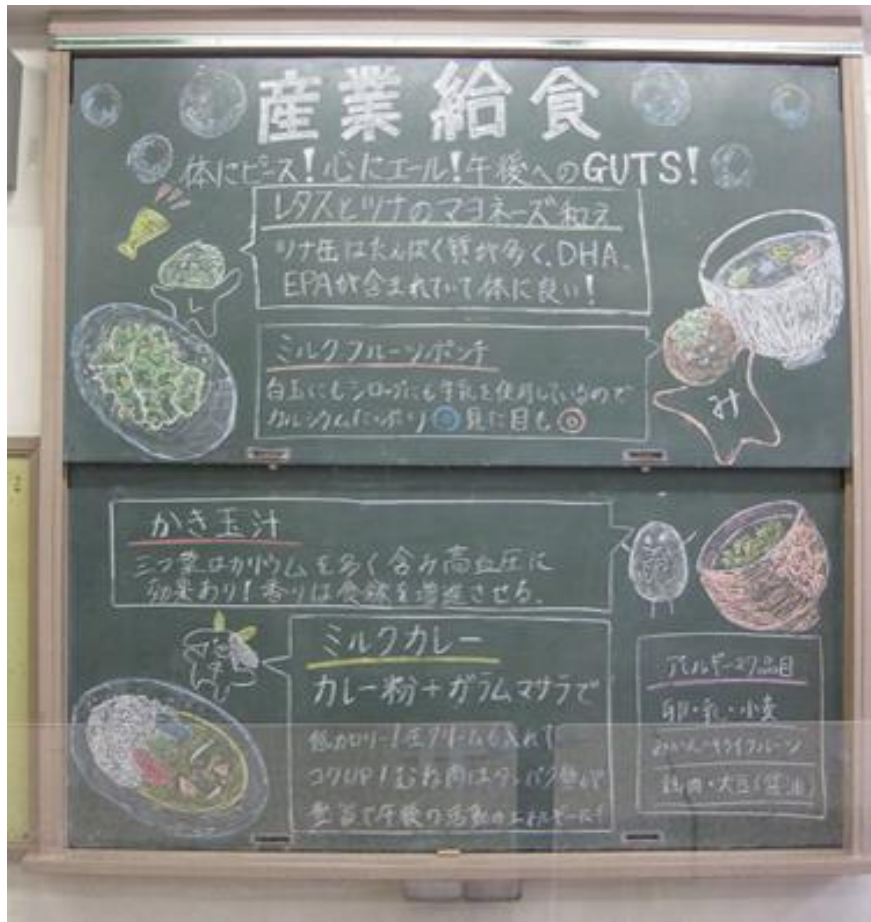 産業給食
体にピース!心にエール!午後へのGUTS!
レタスとツナのマヨネーズ和え
ツナ缶はたんぱく質が多く、DHA、
EPAが含まれていて体に良い!
レ
ミルクフルーツポンチ
白玉にもシロップにも牛乳を使用しているので
カルシウムたっぷり◎見た目も◎
み
かき玉汁
三つ葉はカリウムを多く含み高血圧に
効果あり!香りは食欲を増進させる。
ミルクカレー
カレー粉+ガラムマサラで
低カロリー!生クリームも入れて
コクUP!むね肉はタンパク質
豊富で午後の活動のエネルギーに!
アレルギー27品目
卵・乳・小麦
みかん・キウイフルーツ
鶏肉・大豆(醤油)